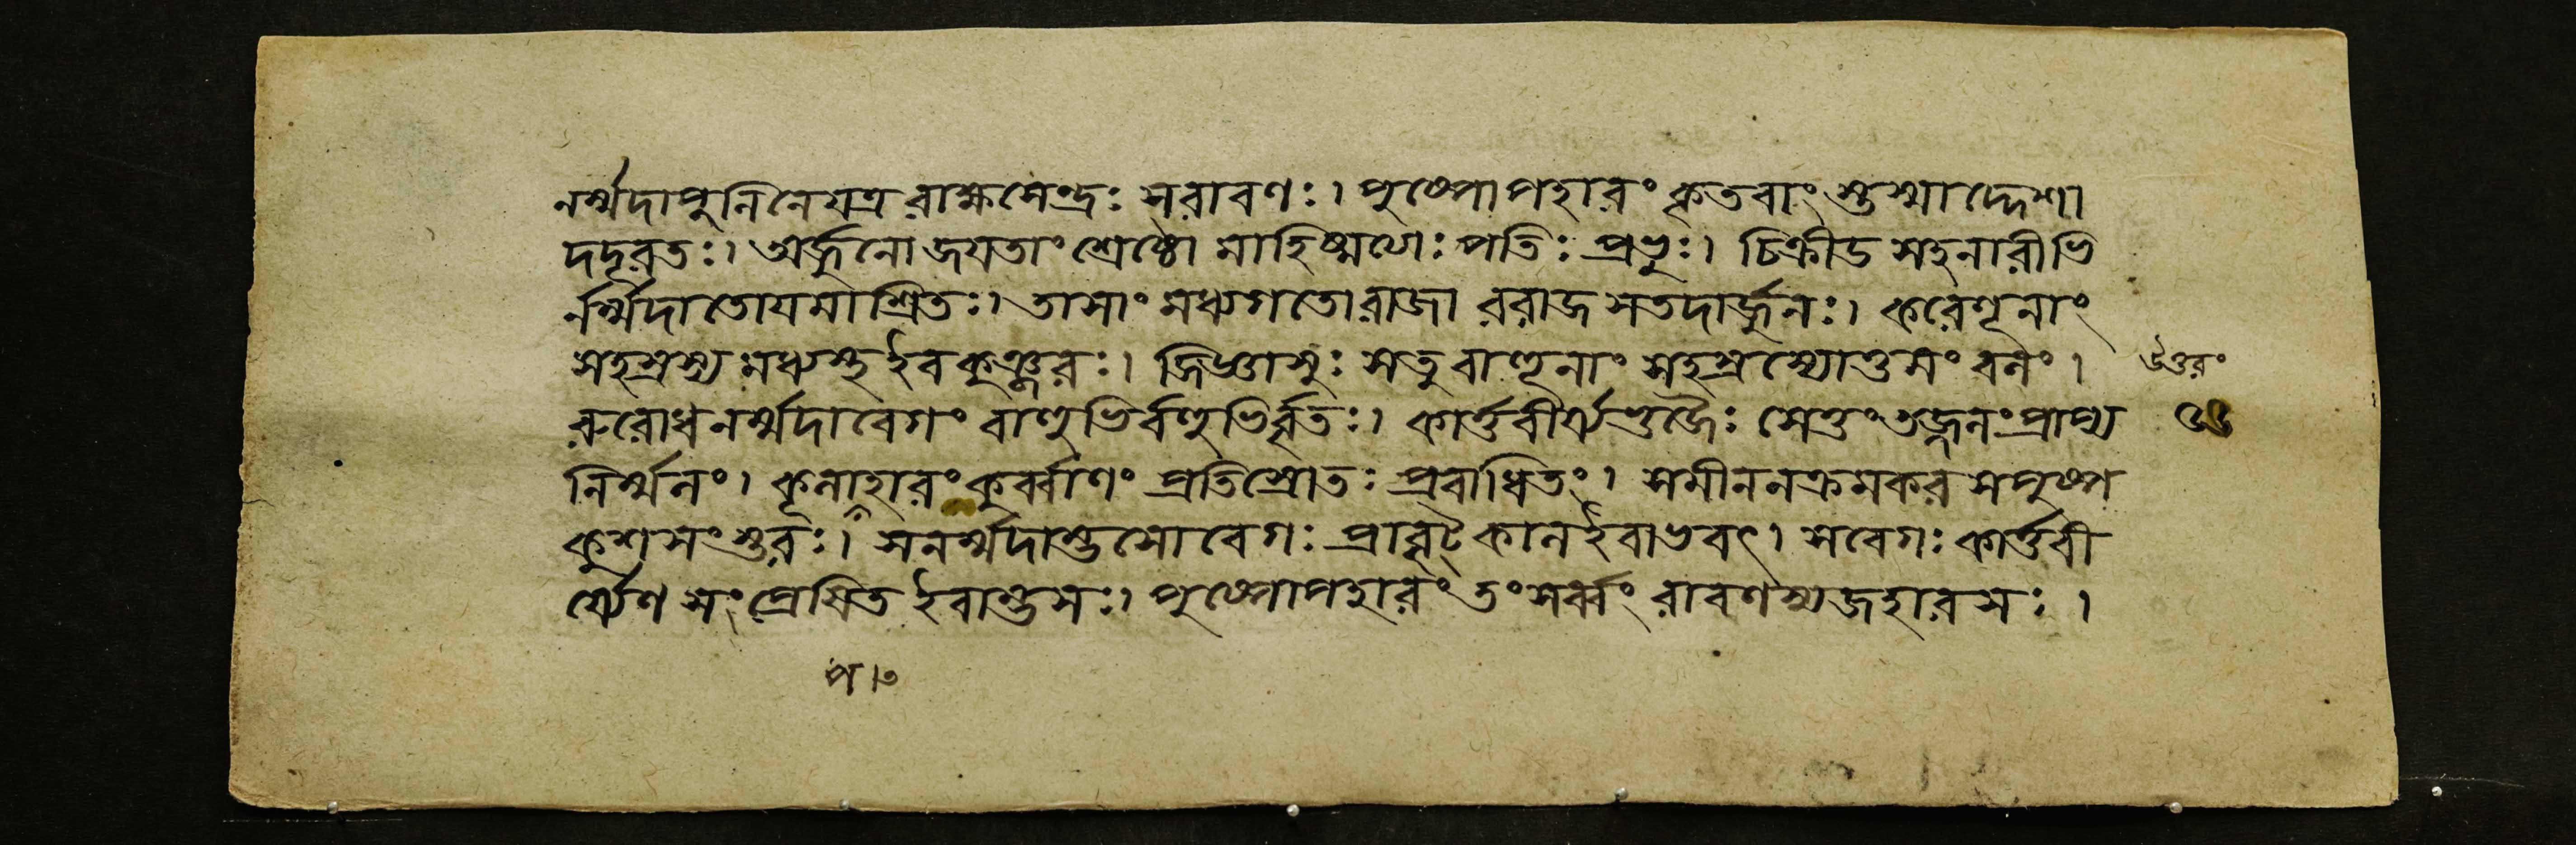 নর্ম্মদাপুলিনে যত্র রাক্ষসেন্দ্রঃ স রাবণঃ। পুষ্পোপহারং কৃতবাংস্তস্মাদ্দেশা
দদূরতঃ। অর্জুনো জয়তাং শ্রেষ্ঠো মাহিষ্মত্যাঃ পতিঃ প্রভুঃ। চিক্রীড সহনারীভি
র্নর্ম্মদাতোয়মাশ্রিতঃ। তাসাং মধ্যগতো রাজা ররাজ স তদার্জুনঃ। করেণূনাং
সহস্রস্য মধ্যস্থ ইব কুঞ্জরঃ। জিজ্ঞাসুঃ স তু বাহূনাং সহস্রস্যোত্তমং বলং।
রুরোধ নর্ম্মদাবেগং বাহুভির্বহুভির্বৃতঃ। কার্ত্তবীর্য্যভুজৈঃ সেতুং তজ্জলং প্রাপ্য
নির্ম্মলং। কূলাপহারং কুর্ব্বাণং প্রতিস্রোতঃ প্রবাধিতং। সমীননক্রমকর সপুষ্প
কুশসংস্তরঃ। স নর্ম্মদাম্ভসো বেগঃ প্রাবৃট্কাল ইবাভবৎ। স বেগঃ কার্ত্তবী
র্য্যেণ সংপ্রেষিত ইবাম্ভসঃ। পুষ্পোপহারং তং সর্ব্বং রাবণস্য জহার সঃ।
উত্তরং
প। ৬